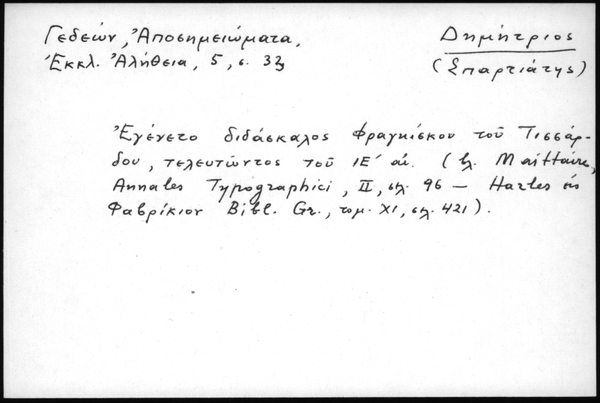 Γεδεών, Ἀποσημειώματα,
Ἐκκλ. Ἀλήθεια, 5, σ. 33
Δημήτριος
(Σπαρτιάτης)
Ἐγένετο διδάσκαλος Φραγκίσκου τοῦ Τισσάρ-
δου, τελευτῶντος τοῦ ΙΕ΄ αἰ. (βλ. Maittaire,
Annales Typographici, II, σελ. 96 – Harles εἰς
Φαβρίκιον Bibl. Gr., τομ. XI, σελ. 421).